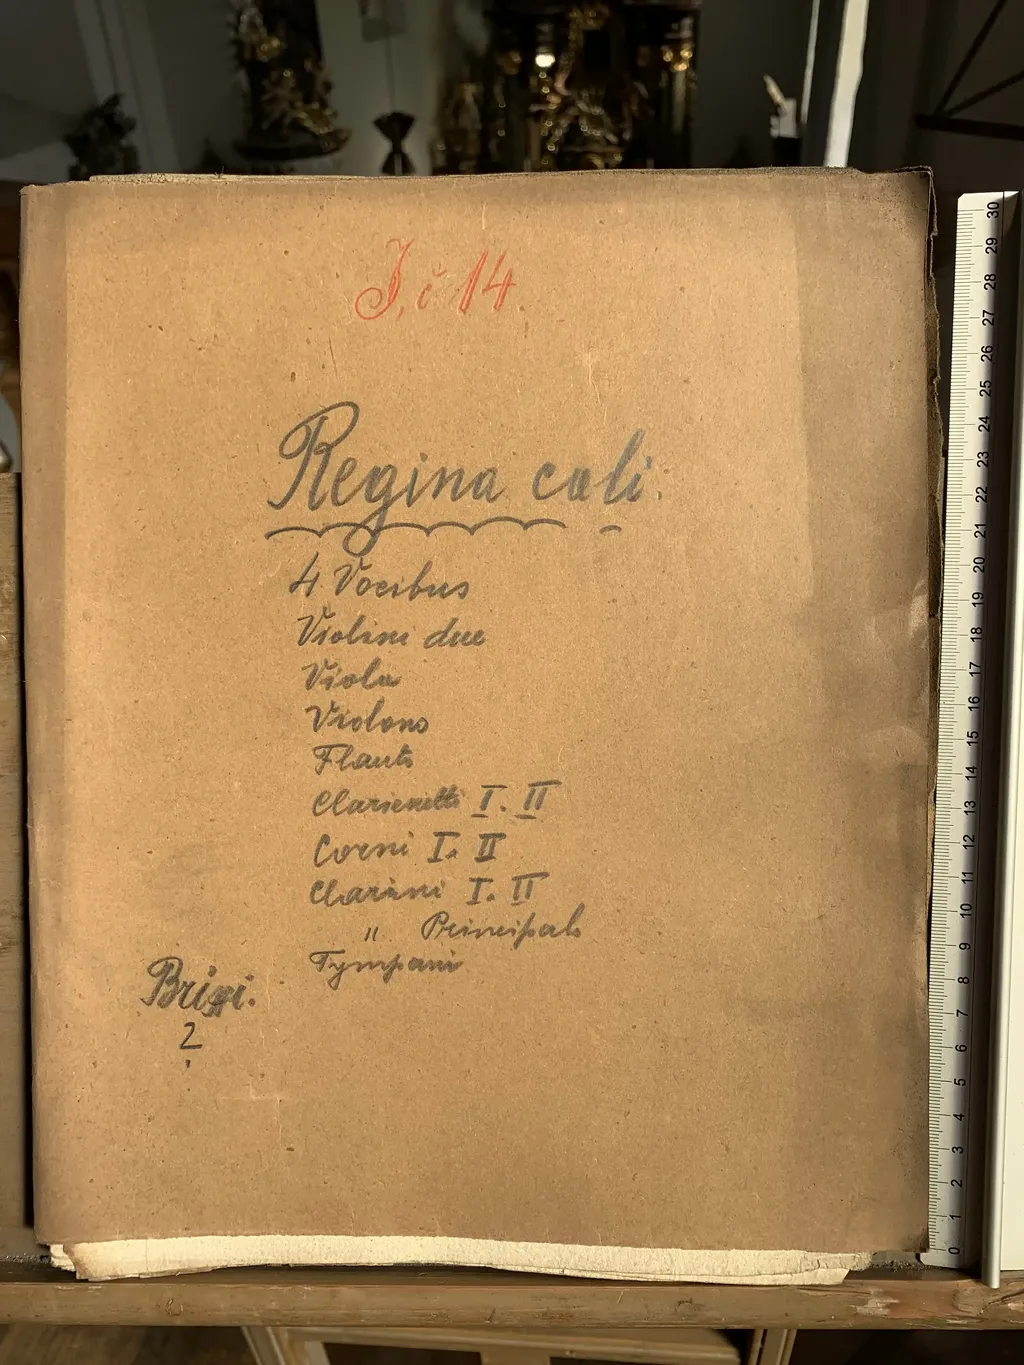 J, č 14.
Regina coli.
4 Vocibus
Violini due
Viola
Violono
Flauto
Clarienetti I. II
Corni I. II
Clarini I. II
" Principal
Tympani
Brixi.
?
30
29
28
27
26
25
24
23
22
21
20
19
18
17
16
15
14
13
12
11
10
9
8
7
6
5
4
3
2
1
0